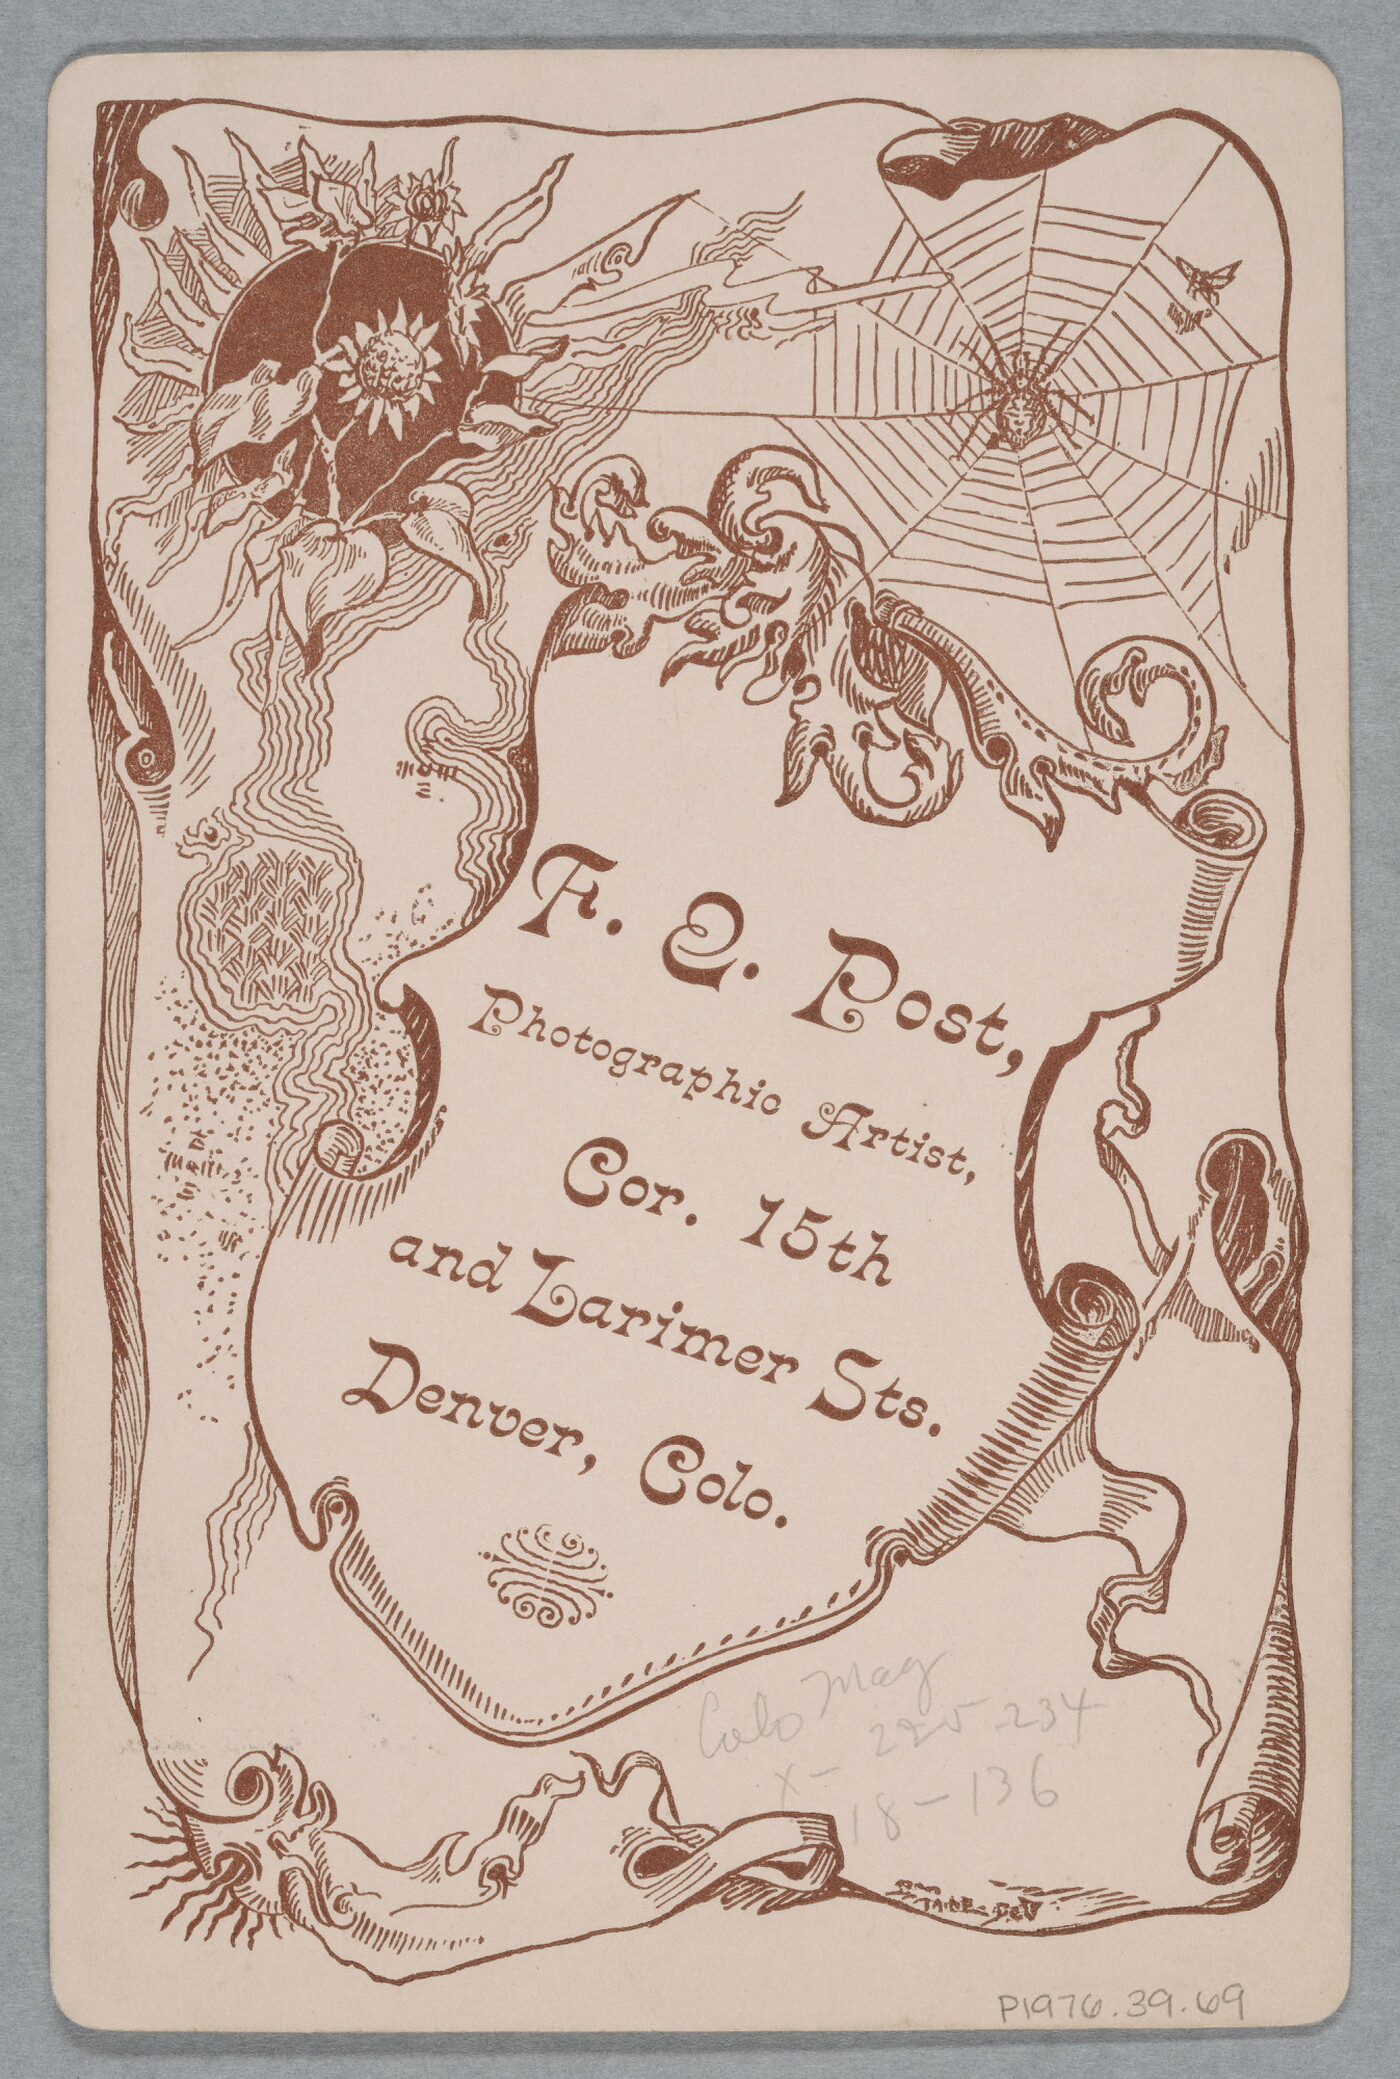 F. E. Post,
Photographic Artist,
Cor. 15th
and Larimer Sts.
Denver, Colo.
Colo Mag
X- 225-234
18-136
P1976.39.69